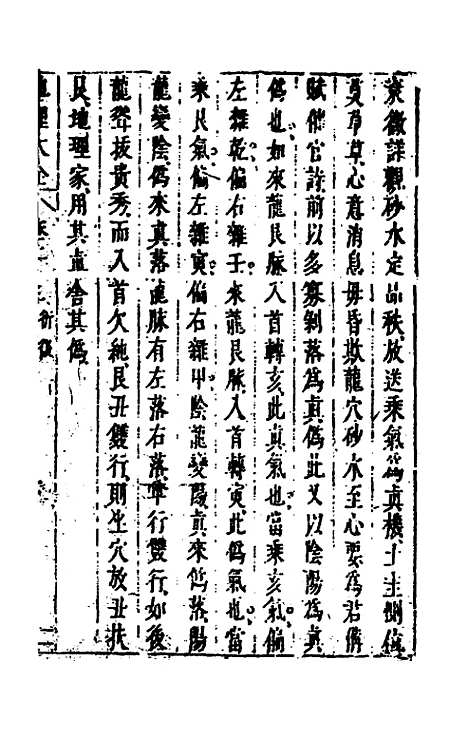 京微詳觀砂水定品秩放送乘氣為真機上主倒值
又草草心意消息毋昏欺龍穴砂水至心要為君傳
賦催官詩前以多寡剝落為真偽此又以陰陽為真
偽也如來龍艮脉入首轉亥此真氣也當乘亥氣偏
左雜乾偏右雜壬來龍艮脉入首轉寅此偽氣也當
乘艮氣偏左雜寅偏右雜甲陰龍變陽真來偽落陽
龍變陰偽來真落龍脉有左落右落單行雙行如後
龍聳拔貴秀而入首欠純艮丑雙行則坐穴放丑扶
艮地理家用其直舍其偽
地理大全